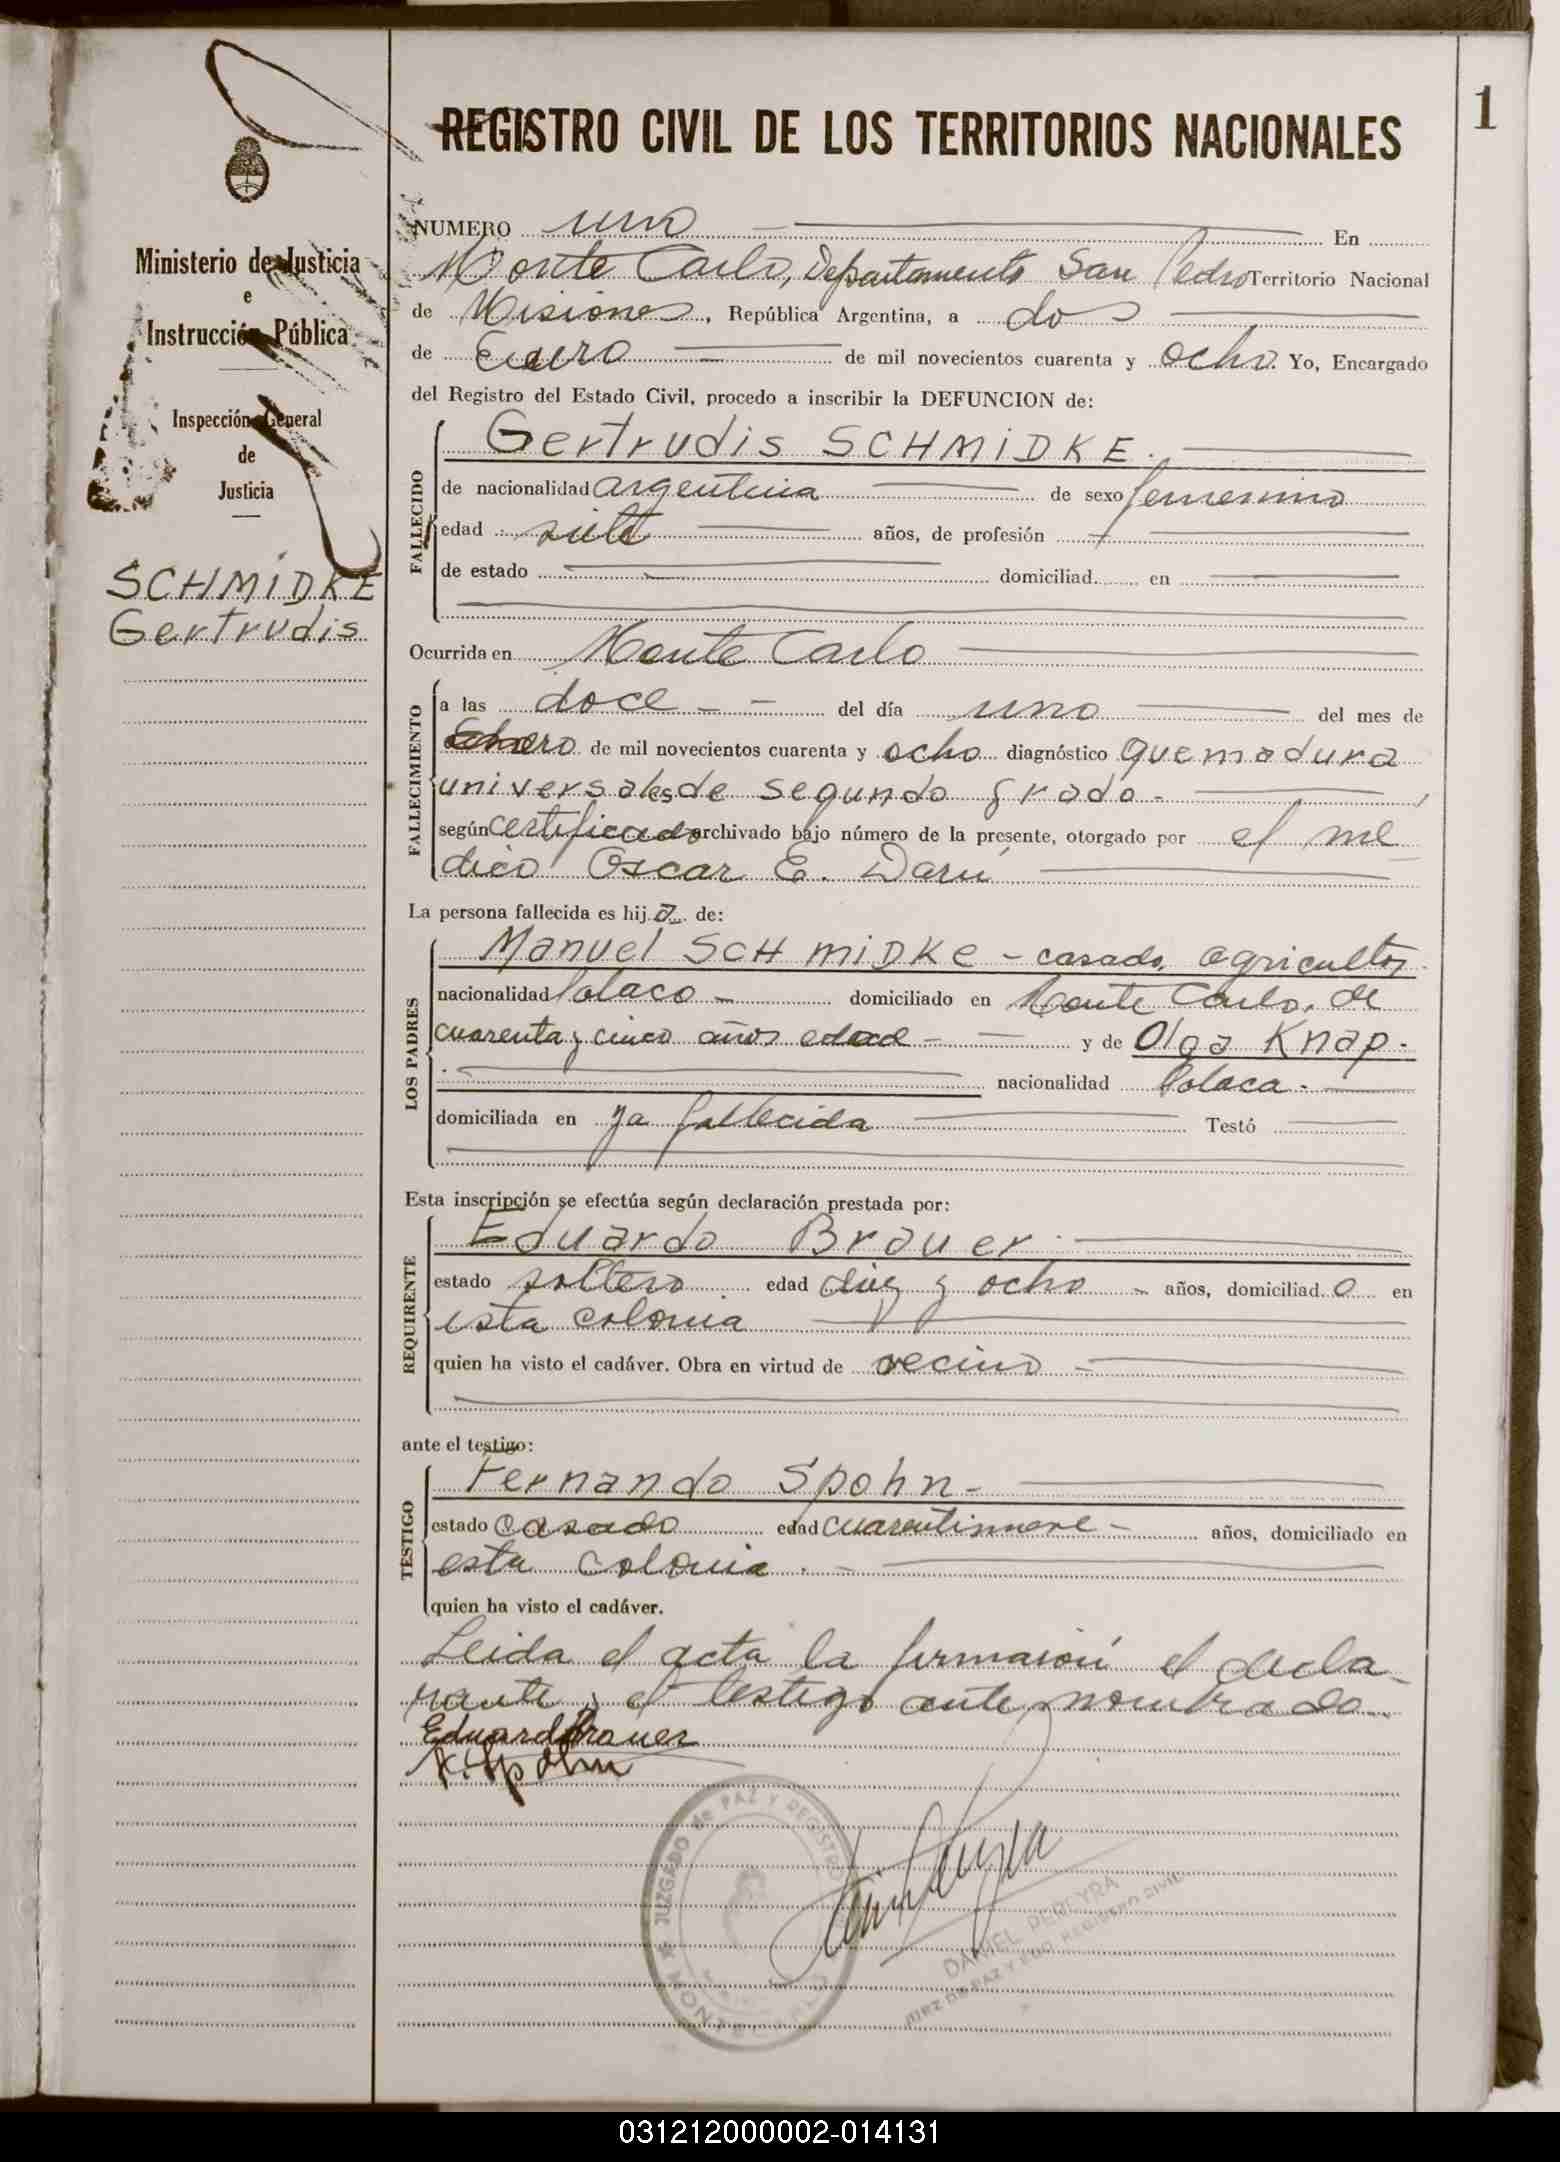 1
REGISTRO CIVIL DE LOS TERRITORIOS NACIONALES
Ministerio de Justicia
e
Instrucción Pública
Inspección General
de
Justicia
SCHMIDKE
Gertrudis
NUMERO uno En
Monte Carlo, Departamento San Pedro Territorio Nacional
de Misiones, República Argentina, a dos
de Enero de mil novecientos cuarenta y ocho. Yo, Encargado
del Registro del Estado Civil, procedo a inscribir la DEFUNCION de:
FALLECIDO
Gertrudis SCHMIDKE.
de nacionalidad argentina de sexo femenino
edad siete años, de profesión
de estado domiciliad en
Ocurrida en Monte Carlo
FALLECIMIENTO
a las doce del día uno del mes de
Enero de mil novecientos cuarenta y ocho diagnóstico quemadura
universales de segundo grado.
según certificado archivado bajo número de la presente, otorgado por el mé
dico Oscar E. Darú
La persona fallecida es hija de:
LOS PADRES
Manuel SCHMIDKE - casado, agricultor
nacionalidad Polaco domiciliado en Monte Carlo, de
cuarenta y cinco años edad y de Olga Knap.
nacionalidad Polaca.
domiciliada en ya fallecida Testó
Esta inscripción se efectúa según declaración prestada por:
REQUIRENTE
Eduardo Brauer
estado soltero edad diez y ocho años, domiciliado en
esta colonia
quien ha visto el cadáver. Obra en virtud de vecino
ante el testigo:
TESTIGO
Fernando Spohn
estado casado edad cuarentinueve años, domiciliado en
esta colonia.
quien ha visto el cadáver.
Leida el acta la firmaron el decla
rante y el testigo ante nombrado
Eduard Brauer
Spohn
JUZGADO de PAZ Y REGISTRO
MONTECARLO
DANIEL PEREYRA
JUEZ DE PAZ Y ENC. REGISTRO CIVIL
031212000002-014131